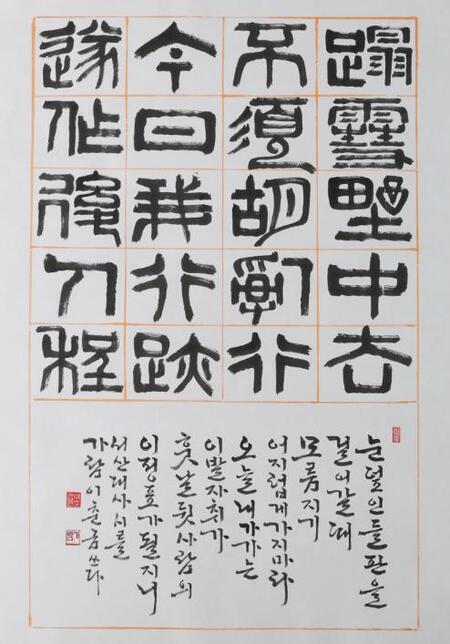 蹋雪野中去
不須胡亂行
今日我行跡
遂作後人程
눈덮인들판을
걸어갈때
모름지기
어지럽게가지마라
오늘내가가는
이발자취가
훗날뒷사람의
이정표가될지니
서산대사시를
가람 쓰다